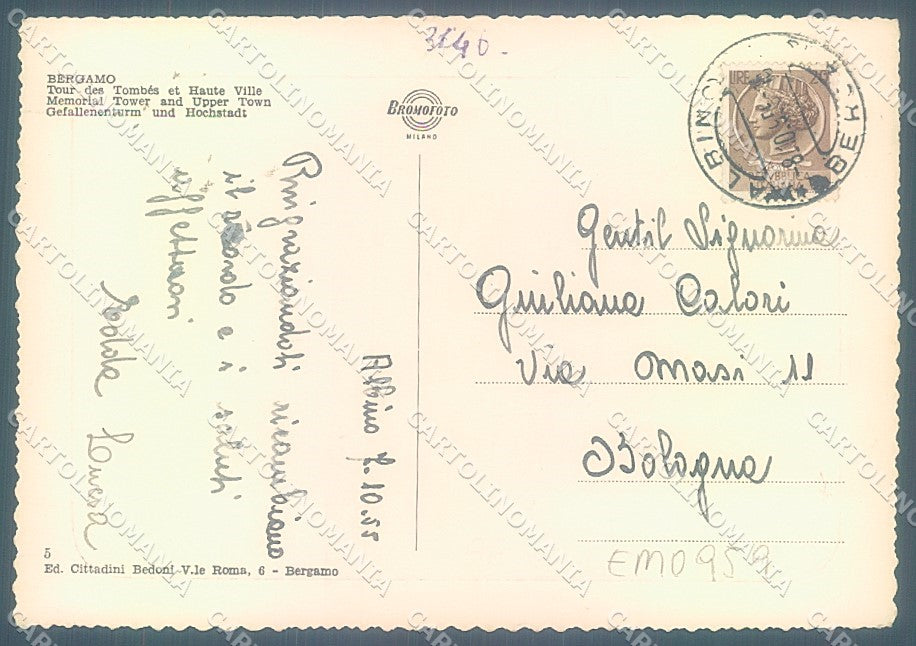 3640.
BERGAMO
Tour des Tombés et Haute Ville
Memorial Tower and Upper Town
Gefallenenturm und Hochstadt
BROMOFOTO
MILANO
Albino 7.10.55
Ringraziandoti ricambiamo
il ricordo e i saluti
affettuosi
LIRE
ALBINO
Gentil Signorina
Giuliana Calori
Via Masi 11
Bologna
EM0959
5
Ed. Cittadini Bedoni V.le Roma, 6 - Bergamo
CARTOLINOMANIA